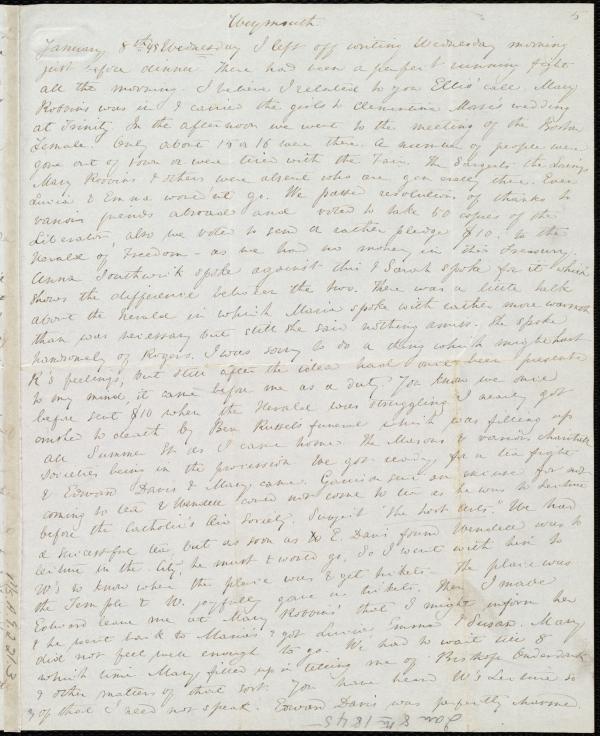 Weymouth 5
January 8th 45 Wednesday I left off writing Wednesday morning
just before dinner. There had been a perfect running fight
all the morning. I believe I related to you Ellis' call. Mary
Robbins was in & carried the girls to Clementina Morse's wedding
at Trinity. In the afternoon we went to the meeting of the Boston
Female. Only about 15 or 16 were there. A number of people were
gone out of town or were tired with the Fair. The Sargents the Lorings
Mary Robbins & others were absent who are generally there. Even
Louisa & Emma would'nt go. We passed resolutions of thanks to
various friends abroad and voted to take 50 copies of the
Liberator, also we voted to send a rather pledge $10. to the
Herald of Freedom - as we had no money in this Treasury,
Anna Southwick spoke against this & Sarah spoke for it which
shows the difference between the two. There was a little talk
about the Herald in which Maria spoke with rather more warmth
than was necessary but still she said nothing amiss. She spoke
handsomely of Rogers. I was sorry to do a thing which might hurt
R's feelings, but still after the idea had once been presented
to my mind, it came before me as a duty. You know we once
before sent $10 when the Herald was struggling. I nearly got
crushed to death by Ben Russels funeral which was filling up
all Summer St. as I came home. The Masons & various charitable
Societies being in the procession. We got ready for a tea fight
& Edward Davis & Mary came. Garrison sent an excuse for not
coming to tea & Wendell could not come to tea as he was to lecture
before the Catholic's Aid Society. Subject "The Lost Arts." We had
a successful tea, but as soon as E. Davis found Wendell was to
lecture in the city, he must & would go. So I went with him to
W's to know where the place was & get tickets. The place was
the Temple & W. joyfully gave us tickets. Then I made
Edward leave me at Mary Robbins' that I might inform her
& he went back to Maria's & got Louisa Emma & Susan. Mary
did not feel well enough to go. We had to wait till 8
which time Mary filled up in telling me of Bishop Onderdonk
& other matters of that sort. You have heard W's Lecture so
of that I need not speak. Edward Davis was perfectly charmed.
Jan 8th 1845